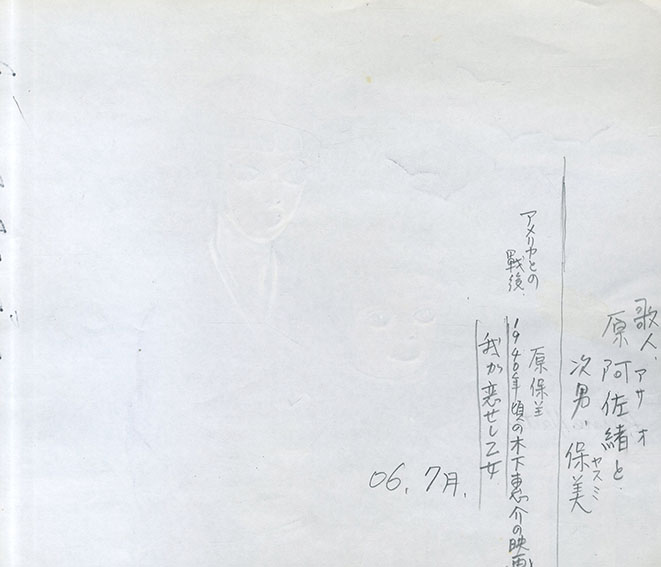 歌人、
アサオ
原 阿佐緒と
ヤスミ
次男、保美
アメリカとの
戦後、
原保美
1946年頃の木下恵介の映画
我が恋せし乙女
06. 7月.